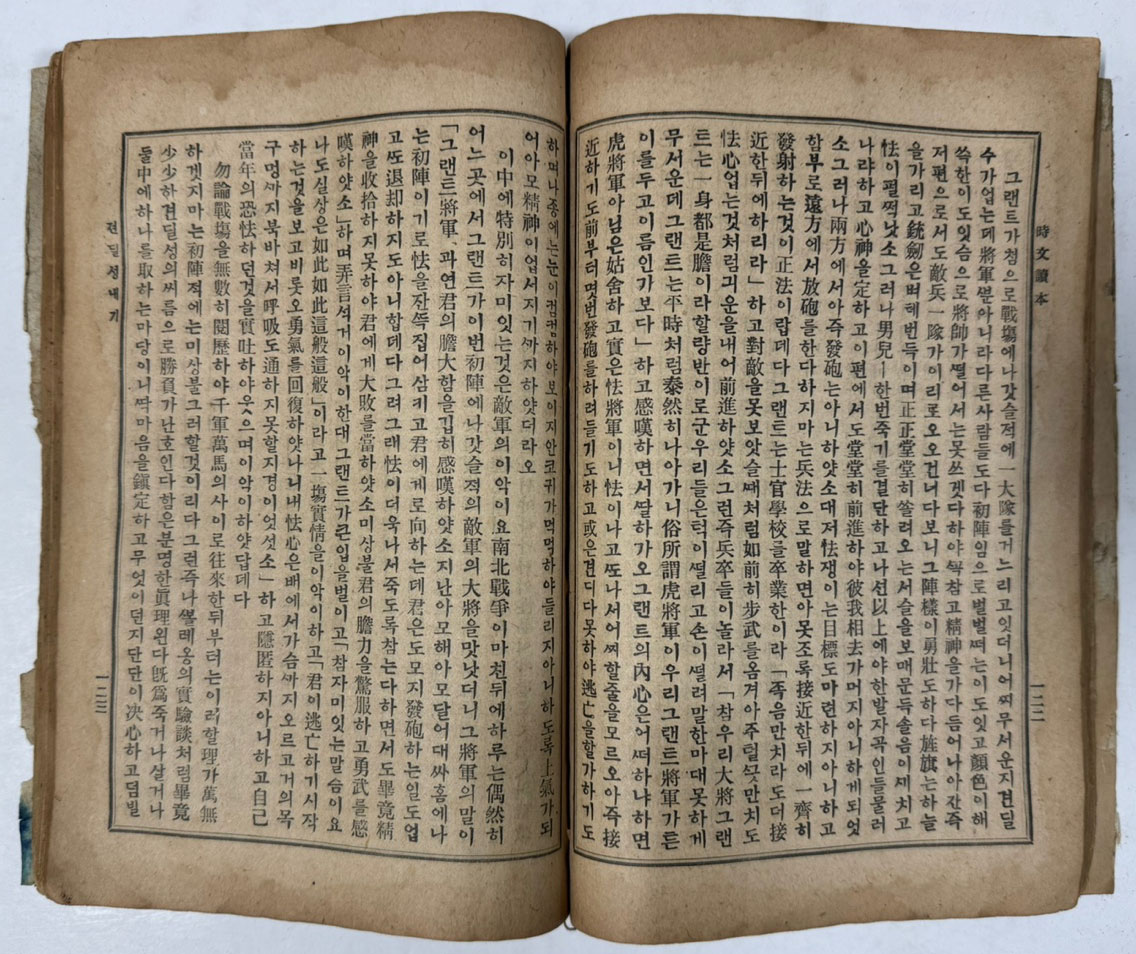 時文讀本
一二二
그랜트가청으로戰塲에나갓슬적에一大隊를거느리고잇더니어찌무서운지견딜
수가업는데將軍뿐아니라다른사람들도다初陣임으로벌벌떠는이도잇고顔色이해
쓱한이도잇슴으로將帥가떨어서는못쓰겟다하야꾹참고精神을가다듬어나아간즉
저편으로서도敵兵一隊가이리로오오건너다보니그陣樣이勇壯도하다旌旗는하늘
을가리고銃劒은번해번득이며正正堂堂히쏠려오는서슬을보매문득솔음이끼치고
怯이펄쩍낫소그러나男兒ㅣ한번죽기를결단하고나선以上에야한발자곡인들물러
나랴하고心神을定하고이편에서도堂堂히前進하야彼我相去가머지아니하게되엇
소그러나兩方에서아즉發砲는아니하얏소대저怯쟁이는目標도마련하지아니하고
함부로遠方에서放砲를한다하지마는兵法으로말하면아못조록接近한뒤에一齊히
發射하는것이正法이랍데다그랜트는士官學校를卒業한이라「족음만치라도더接
近한뒤에하리라」하고對敵을못보앗슬때처럼如前히步武를옴겨아주털끗만치도
怯心업는것처럼긔운을내어前進하얏소그런즉兵卒들이놀라서「참우리大將그랜
트는一身都是膽이라할량반이로군우리들은턱이떨리고손이떨려말한마대못하게
무서운데그랜트는平時처럼泰然히나아가니俗所謂虎將軍이우리그랜트將軍가튼
이를두고이름인가보다」하고感嘆하면서딸하가오그랜트의內心은어떠하냐하면
虎將軍아님은姑舍하고實은怯將軍이니怯이나고또나서어찌할줄을모르오아즉接
近하기도前부터몃번發砲를하려들기도하고或은견디다못하야逃亡을할가하기도
하며나종에는눈이컴컴하야보이지안코귀가먹먹하야들리지아니하도록上氣가되
어아모精神이업서지기까지하얏더라오
이中에特別히자미잇는것은敵軍의이악이요南北戰爭이마친뒤에하루는偶然히
어느곳에서그랜트가이번初陣에나갓슬적의敵軍의大將을맛낫더니그將軍의말이
「그랜트將軍、과연君의膽大함을깁히感嘆하얏소지난아모해아모달어대싸홈에나
는初陣이기로怯을잔뜩집어삼키고君에게로向하는데君은도모지發砲하는일도업
고또退却하지도아니합데다그려그래怯이더욱나서죽도록참는다하면서도畢竟精
神을收拾하지못하야君에게大敗를當하얏소미상불君의膽力을驚服하고勇武를感
嘆하얏소」하며弄言석거이악이한대그랜트가큰입을벌이고「참자미잇는말슴이요
나도실상은如此如此這般這般」이라고一塲實情을이악이하고「君이逃亡하기시작
하는것을보고비롯오勇氣를回復하얏나니내怯心은배에서가슴까지오르고거의목
구멍까지북바쳐서呼吸도通하지못할지경이엇섯소」하고隱匿하지아니하고自己
當年의恐怯하던것을實吐하야웃으며이악이하얏답데다
勿論戰塲을無數히閱歷하야千軍萬馬의사이로往來한뒤부터는이러할理가萬無
하겟지마는初陣적에는미상불그러할것이리다그런즉나뽈레옹의實驗談처럼畢竟
少少하견딜성의씨름으로勝負가난호인다함은분명한眞理원다旣爲죽거나살거나
둘中에하나를取하는마당이니딱마음을鎭定하고무엇이던지단단이決心하고덤빌
견딜성내기
一二三